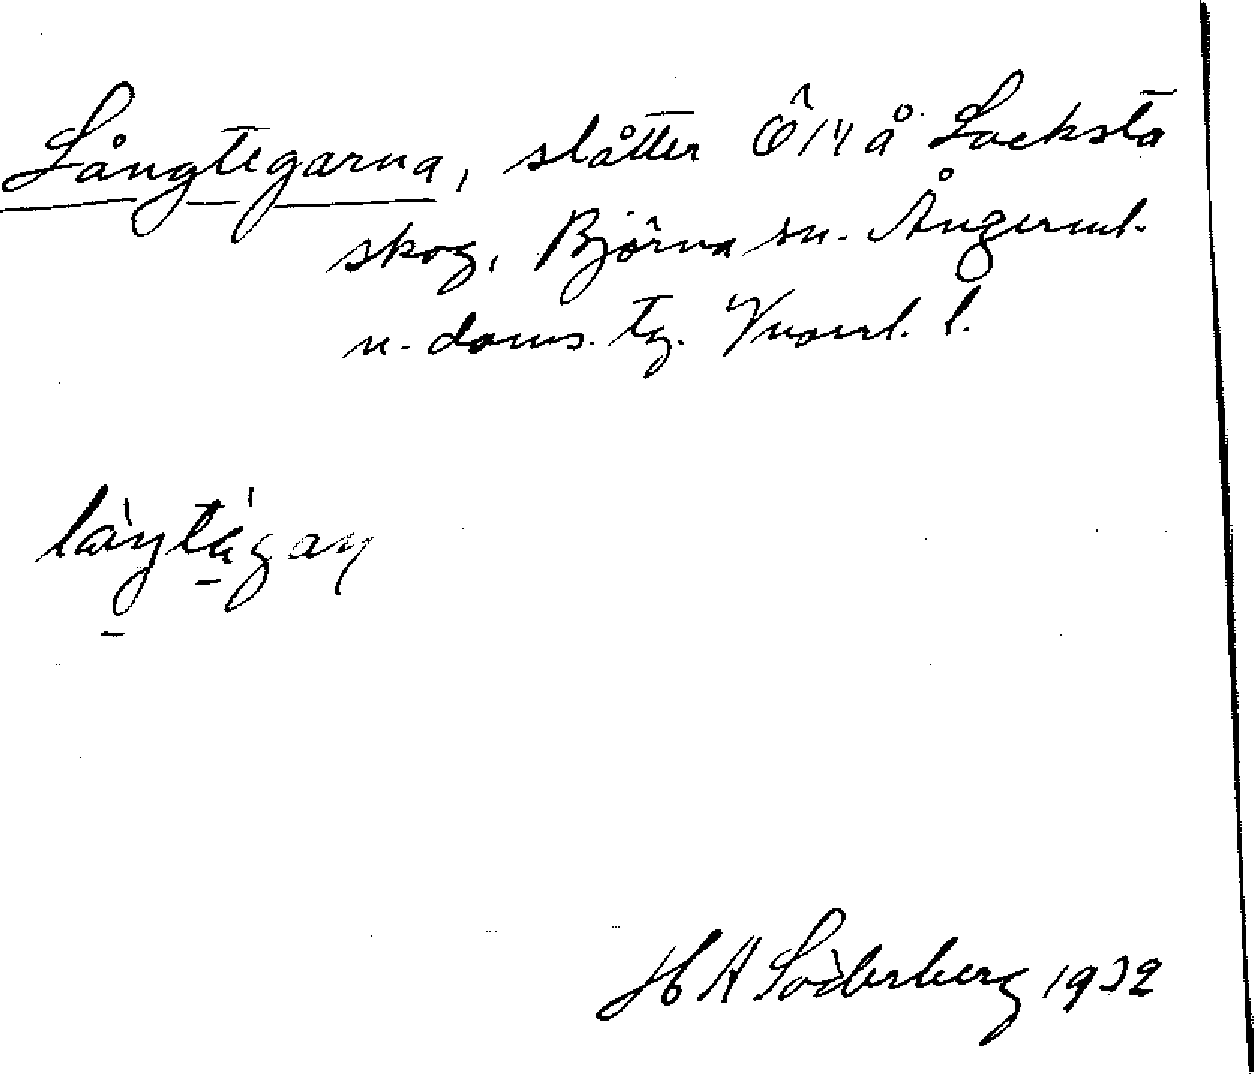 Långtegarna, slåtter Ö 14 å Locksta
skog, Björna sn. Ångerml.
n. doms. tg. Vnorrl. l.
HA Söderberg 1932